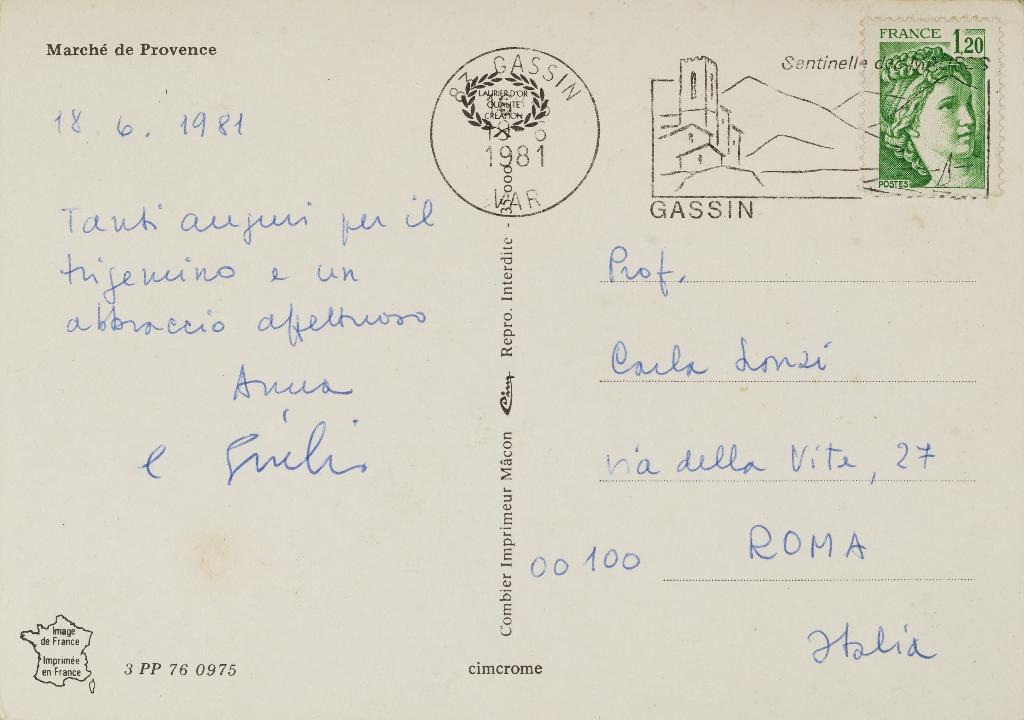 Marché de Provence
18. 6. 1981
Tanti auguri per il
trigemino e un
abbraccio affettuoso
Anna
e Giulio
83 GASSIN
LAURIER D'OR
QUALITÉ
CRÉATION
1981
VAR
Sentinelle des
GASSIN
FRANCE 1,20
POSTES
Prof.
Carla Lonzi
via della Vite, 27
00100 ROMA
Italia
Combier Imprimeur Mâcon Cim Repro. Interdite - 35.000
Image
de France
Imprimée
en France
3 PP 76 0975
cimcrome